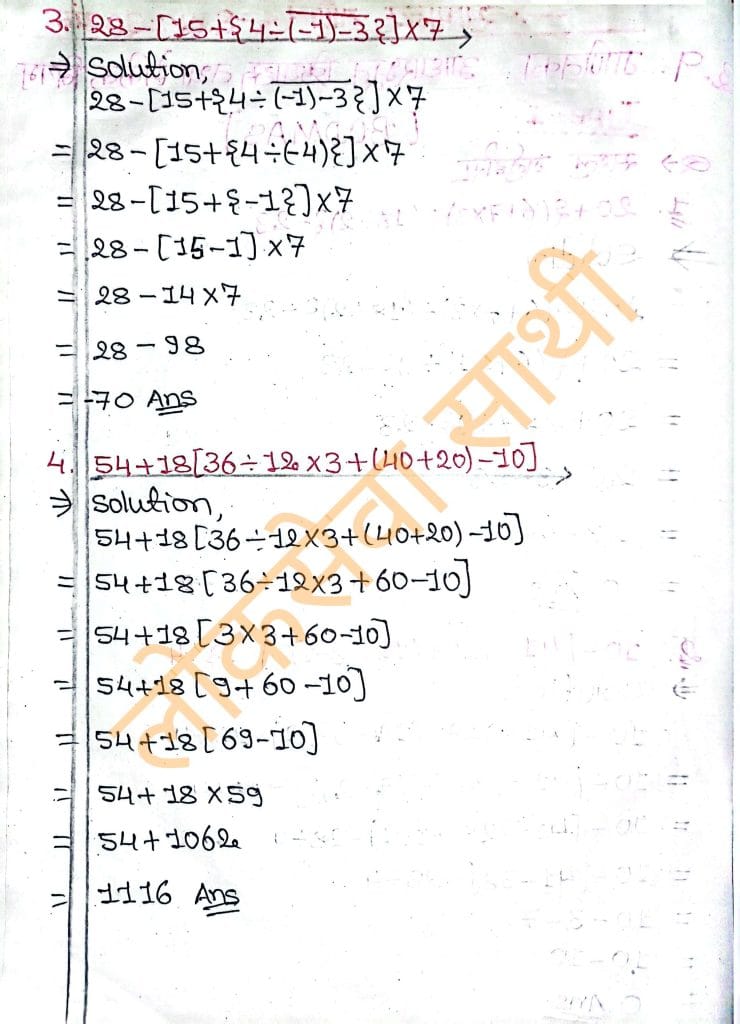 3. 28-[15+{4÷(-1)-3̅}]×7
⇒ Solution,
28-[15+{4÷(-1)-3}]×7
= 28-[15+{4÷(-4)}]×7
= 28-[15+{-1}]×7
= 28-[15-1]×7
= 28-14×7
= 28-98
= -70 Ans
4. 54+18[36÷12×3+(40+20)-10]
⇒ Solution,
54+18[36÷12×3+(40+20)-10]
= 54+18[36÷12×3+60-10]
= 54+18[3×3+60-10]
= 54+18[9+60-10]
= 54+18[69-10]
= 54+18×59
= 54+1062
= 1116 Ans
लोकसेवा साथी